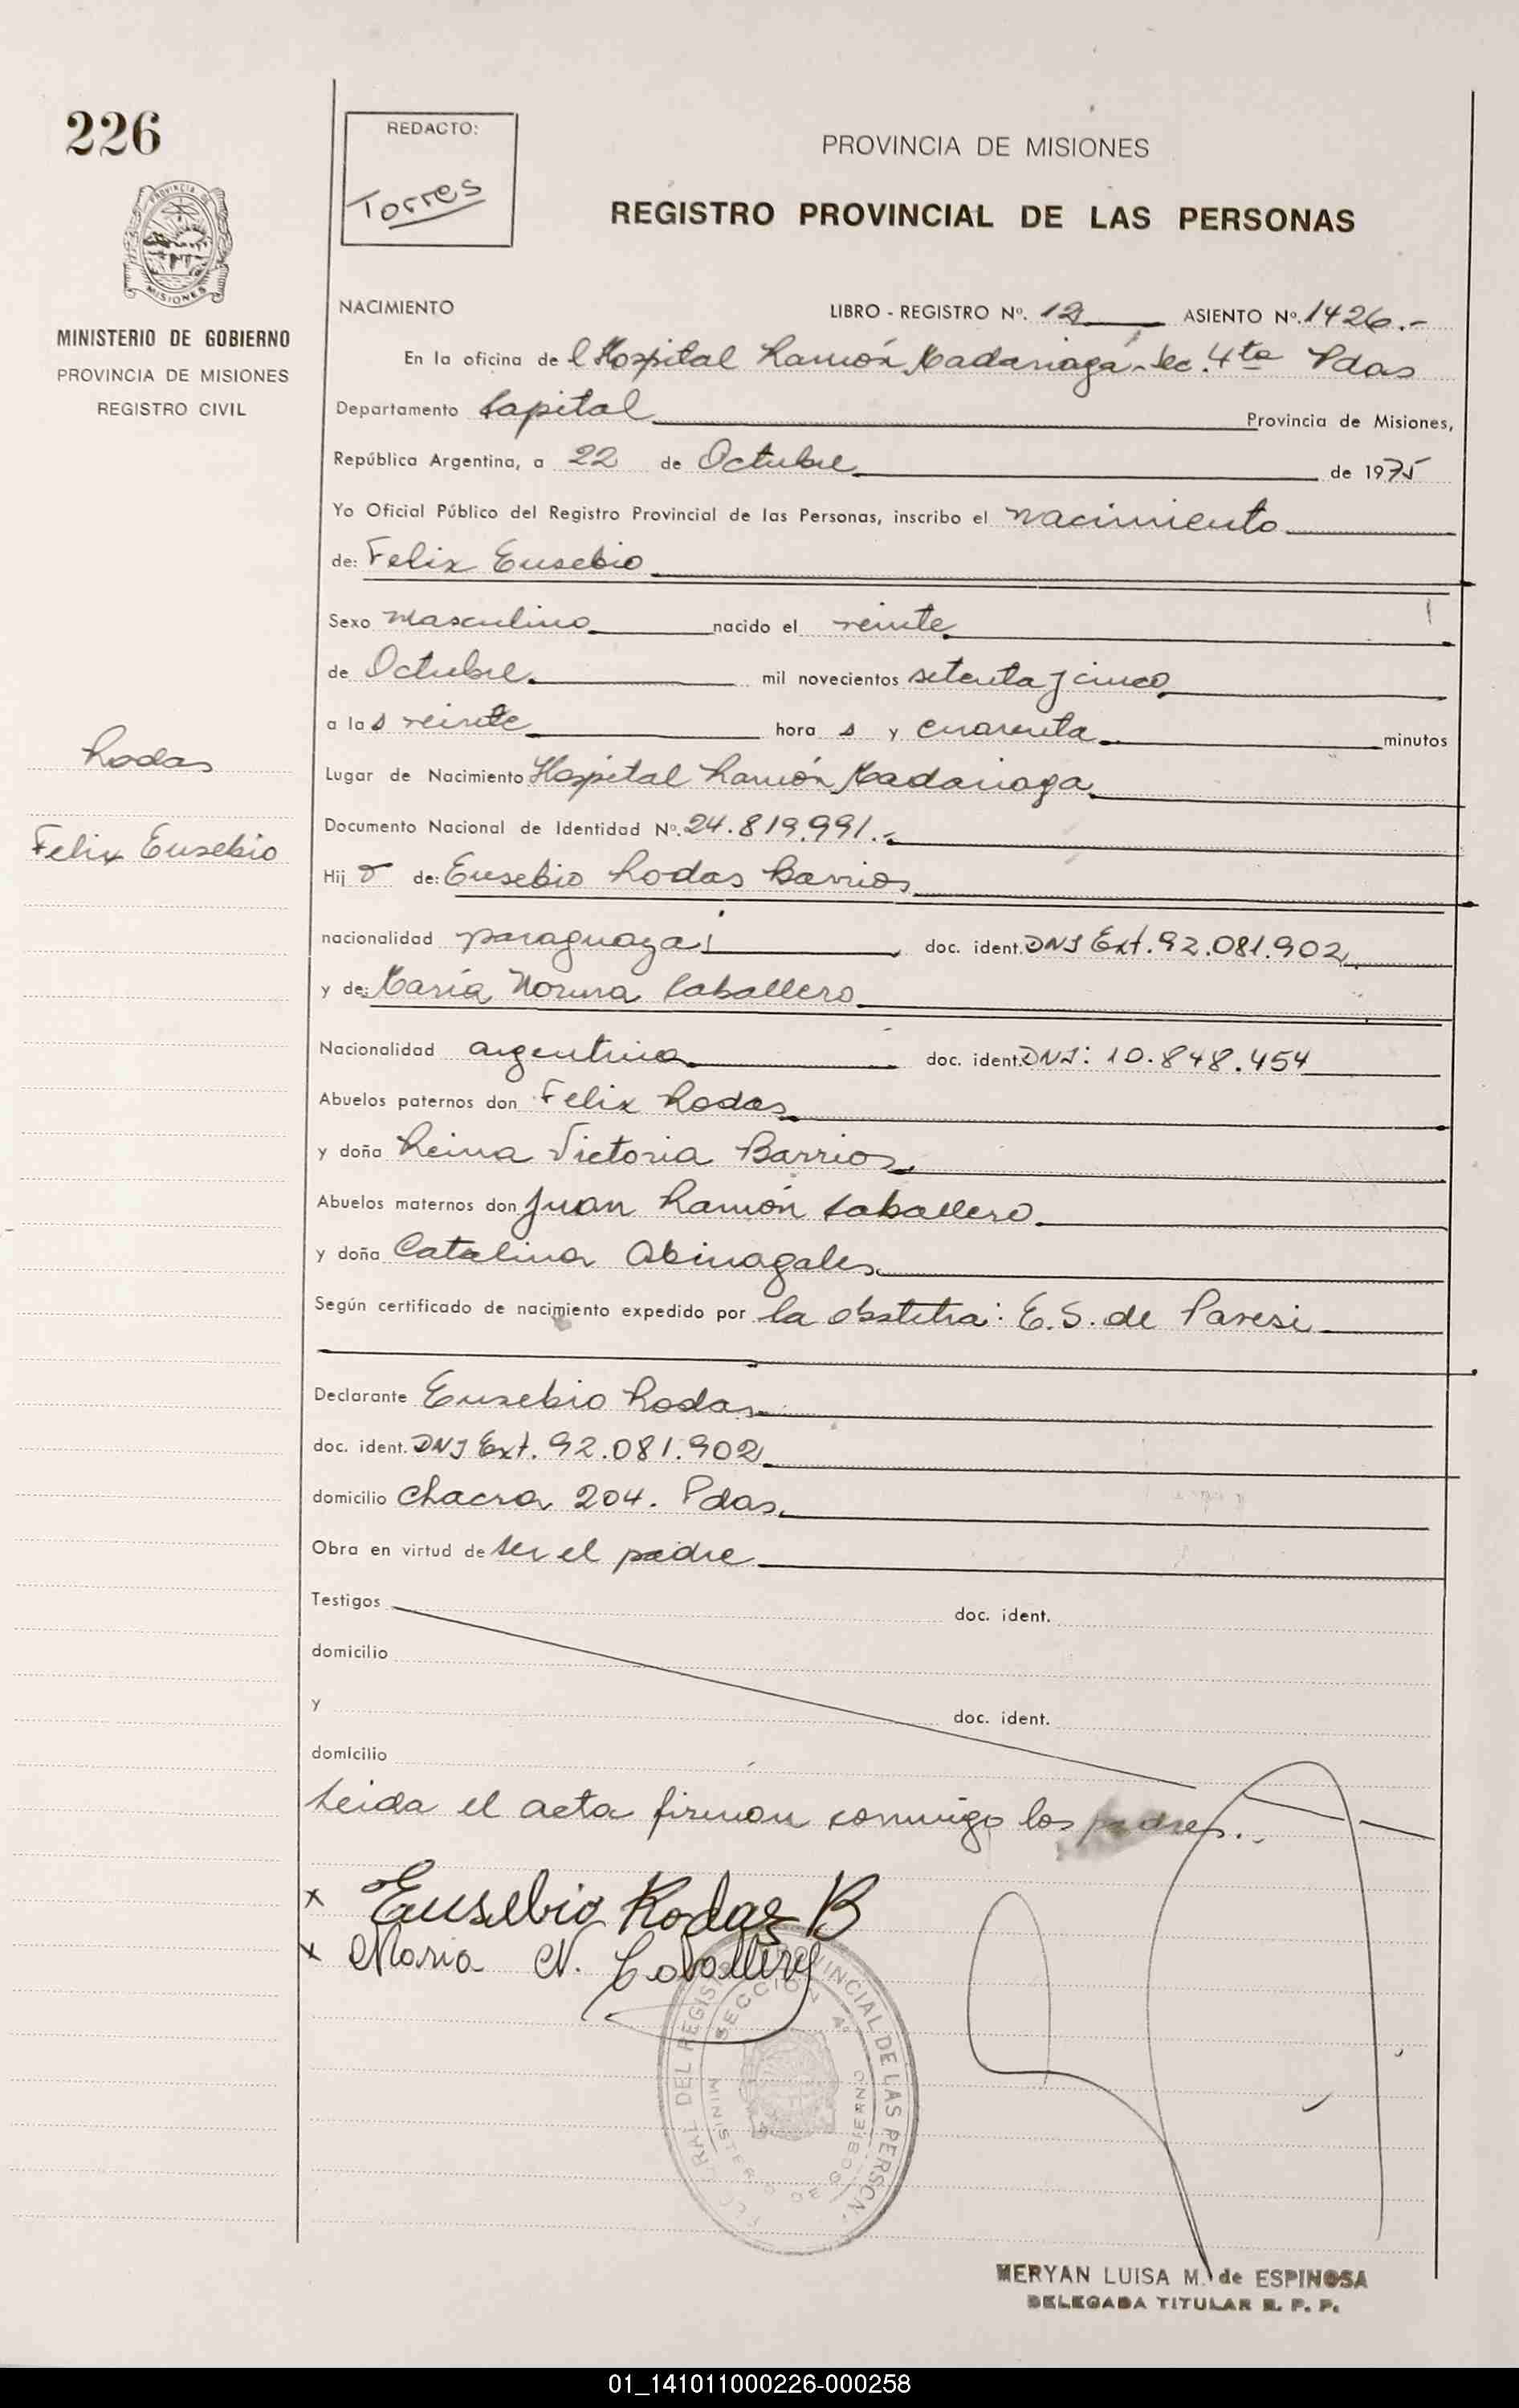 226
REDACTO:
Torres
PROVINCIA DE MISIONES
REGISTRO PROVINCIAL DE LAS PERSONAS
MISIONES
MINISTERIO DE GOBIERNO
PROVINCIA DE MISIONES
REGISTRO CIVIL
NACIMIENTO LIBRO - REGISTRO Nº. 12 ASIENTO Nº. 1426.-
En la oficina de l Hospital Ramón Madariaga - Sec. 4ta Pdas
Departamento Capital Provincia de Misiones,
República Argentina, a 22 de Octubre de 1975
Yo Oficial Público del Registro Provincial de las Personas, inscribo el nacimiento
de: Felix Eusebio
Sexo masculino nacido el veinte
de Octubre mil novecientos setenta y cinco
a las veinte hora s y cuarenta minutos
Rodas
Lugar de Nacimiento Hospital Ramón Madariaga
Documento Nacional de Identidad Nº. 24.819.991.-
Felix Eusebio
Hij o de: Eusebio Rodas Barrios
nacionalidad paraguaya doc. ident. DNI Ext. 92.081.902
y de: María Norma Caballero
Nacionalidad argentina doc. ident. DNI: 10.848.454
Abuelos paternos don Felix Rodas
y doña Reina Victoria Barrios
Abuelos maternos don Juan Ramón Caballero
y doña Catalina Abinagales
Según certificado de nacimiento expedido por la obstetra: E.S. de Paresi
Declarante Eusebio Rodas
doc. ident. DNI Ext. 92.081.902
domicilio Chacra 204. Pdas
Obra en virtud de ser el padre
Testigos doc. ident.
domicilio
y doc. ident.
domicilio
Leida el acta firman conmigo los padres.
x Eusebio Rodas B
x Maria N. Caballero
REGISTRO PROVINCIAL DE LAS PERSON.
SECCION 4ª
MINISTERIO DE GOBIERNO
MERYAN LUISA M. de ESPINOSA
DELEGADA TITULAR R. P. P.
01_141011000226-000258